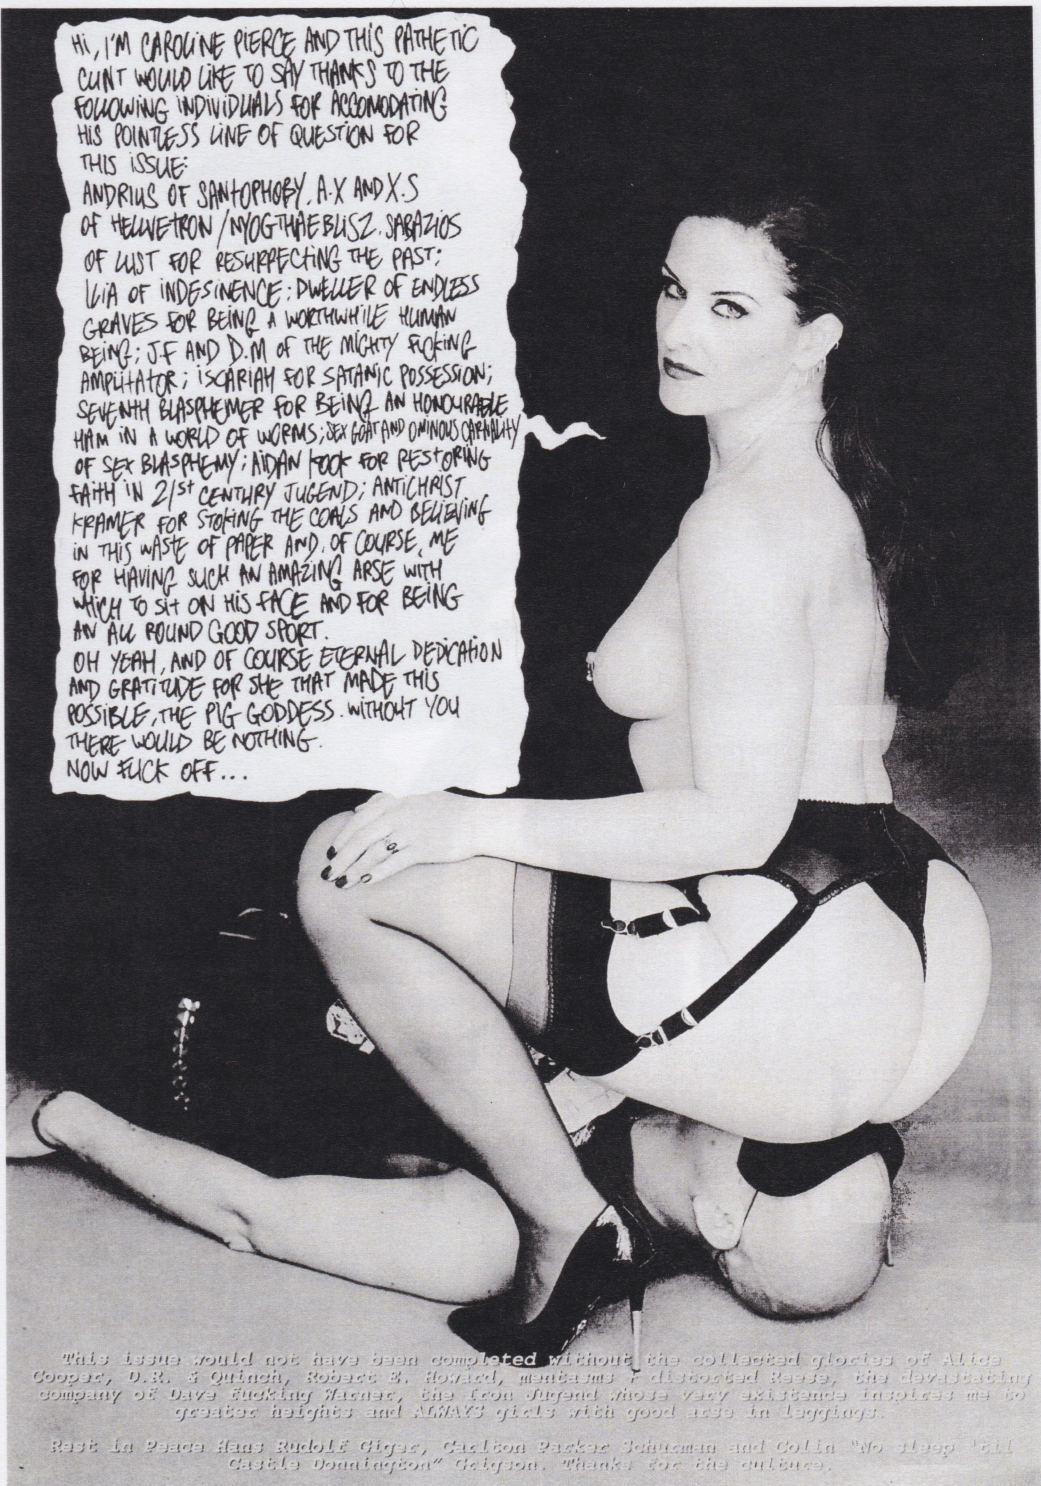 HI, I'M CAROLINE PIERCE AND THIS PATHETIC
CUNT WOULD LIKE TO SAY THANKS TO THE
FOLLOWING INDIVIDUALS FOR ACCOMODATING
HIS POINTLESS LINE OF QUESTION FOR
THIS ISSUE:
ANDRIUS OF SANTOPHOBY, A.X AND X.S
OF HELLVETRON / NYOGTHAEBLISZ. SABAZIOS
OF LUST FOR RESURRECTING THE PAST;
ILIA OF INDESINENCE; DWELLER OF ENDLESS
GRAVES FOR BEING A WORTHWHILE HUMAN
BEING; J.F AND D.M OF THE MIGHTY FUCKING
AMPUTATOR; ISCARIAH FOR SATANIC POSSESSION;
SEVENTH BLASPHEMER FOR BEING AN HONOURABLE
HAM IN A WORLD OF WORMS; SEX GOAT AND OMINOUS CARNALITY
OF SEX BLASPHEMY; AIDAN FOR RESTORING
FAITH IN 21st CENTURY JUGEND; ANTICHRIST
KRAMER FOR STOKING THE COALS AND BELIEVING
IN THIS WASTE OF PAPER AND, OF COURSE, ME
FOR HAVING SUCH AN AMAZING ARSE WITH
WHICH TO SIT ON HIS FACE AND FOR BEING
AN ALL ROUND GOOD SPORT.
OH YEAH, AND OF COURSE ETERNAL DEDICATION
AND GRATITUDE FOR SHE THAT MADE THIS
POSSIBLE, THE PIG GODDESS. WITHOUT YOU
THERE WOULD BE NOTHING.
NOW FUCK OFF...
This issue would not have been completed without the collected glories of Alice
Cooper, D.R. & Quinch, Robert E. Howard, mentasms r distorted Reese, the devastating
company of Dave Fucking Warner, the Iron Jugend whose very existence inspires me to
greater heights and ALWAYS girls with good arse in leggings.
Rest in Peace Hans Rudolf Giger, Carlton Parker Schurman and Colin "No sleep 'til
Castle Donnington" Grigson. Thanks for the culture.